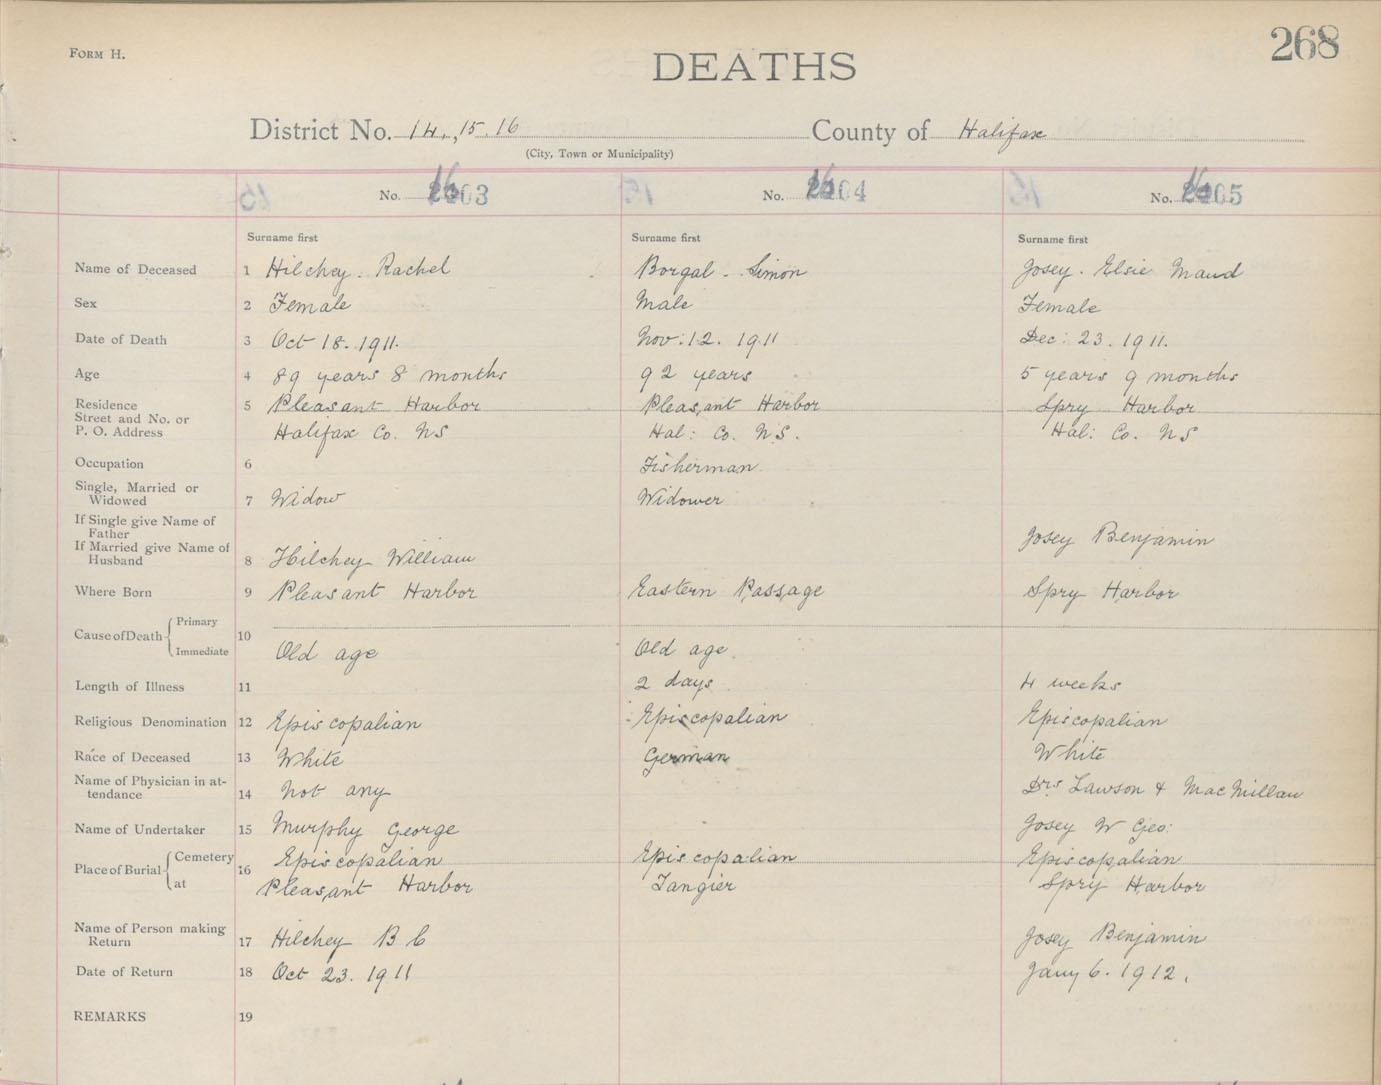 Form H.
268
DEATHS
District No. 14, 15. 16 County of Halifax
(City, Town or Municipality)
No. 1603 No. 1604 No. 1605
Surname first Surname first Surname first
Name of Deceased 1 Hilchey. Rachel Borgal - Simon Josey. Elsie Maud
Sex 2 Female Male Female
Date of Death 3 Oct 18. 1911. Nov: 12. 1911 Dec: 23. 1911.
Age 4 89 years 8 months 92 years 5 years 9 months
Residence 5 Pleasant Harbor Pleasant Harbor Spry Harbor
Street and No. or
P. O. Address Halifax Co. NS Hal: Co. N.S. Hal: Co. NS
Occupation 6 Fisherman
Single, Married or
Widowed 7 Widow Widower
If Single give Name of
Father Josey Benjamin
If Married give Name of
Husband 8 Hilchey William
Where Born 9 Pleasant Harbor Eastern Passage Spry Harbor
Cause of Death Primary 10
Immediate Old age Old age.
Length of Illness 11 2 days 4 weeks
Religious Denomination 12 Episcopalian Episcopalian Episcopalian
Race of Deceased 13 White German White
Name of Physician in at-
tendance 14 Not any Drs Lawson & MacMillan
Name of Undertaker 15 Murphy George Josey W Geo:
Place of Burial Cemetery 16 Episcopalian Episcopalian Episcopalian
at Pleasant Harbor Tangier Spry Harbor
Name of Person making
Return 17 Hilchey B C Josey Benjamin
Date of Return 18 Oct 23. 1911 Jany 6. 1912.
REMARKS 19